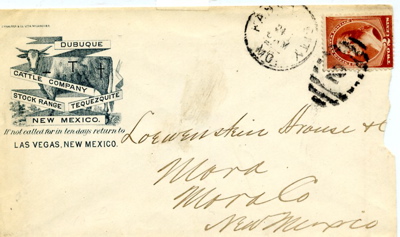 DUBUQUE
CATTLE COMPANY
STOCK RANGE TEQUEZQUITE
NEW MEXICO.
If not called for in ten days return to
LAS VEGAS, NEW MEXICO.
KANSAS CITY
MO.
Mora
Mora Co
New Mexico